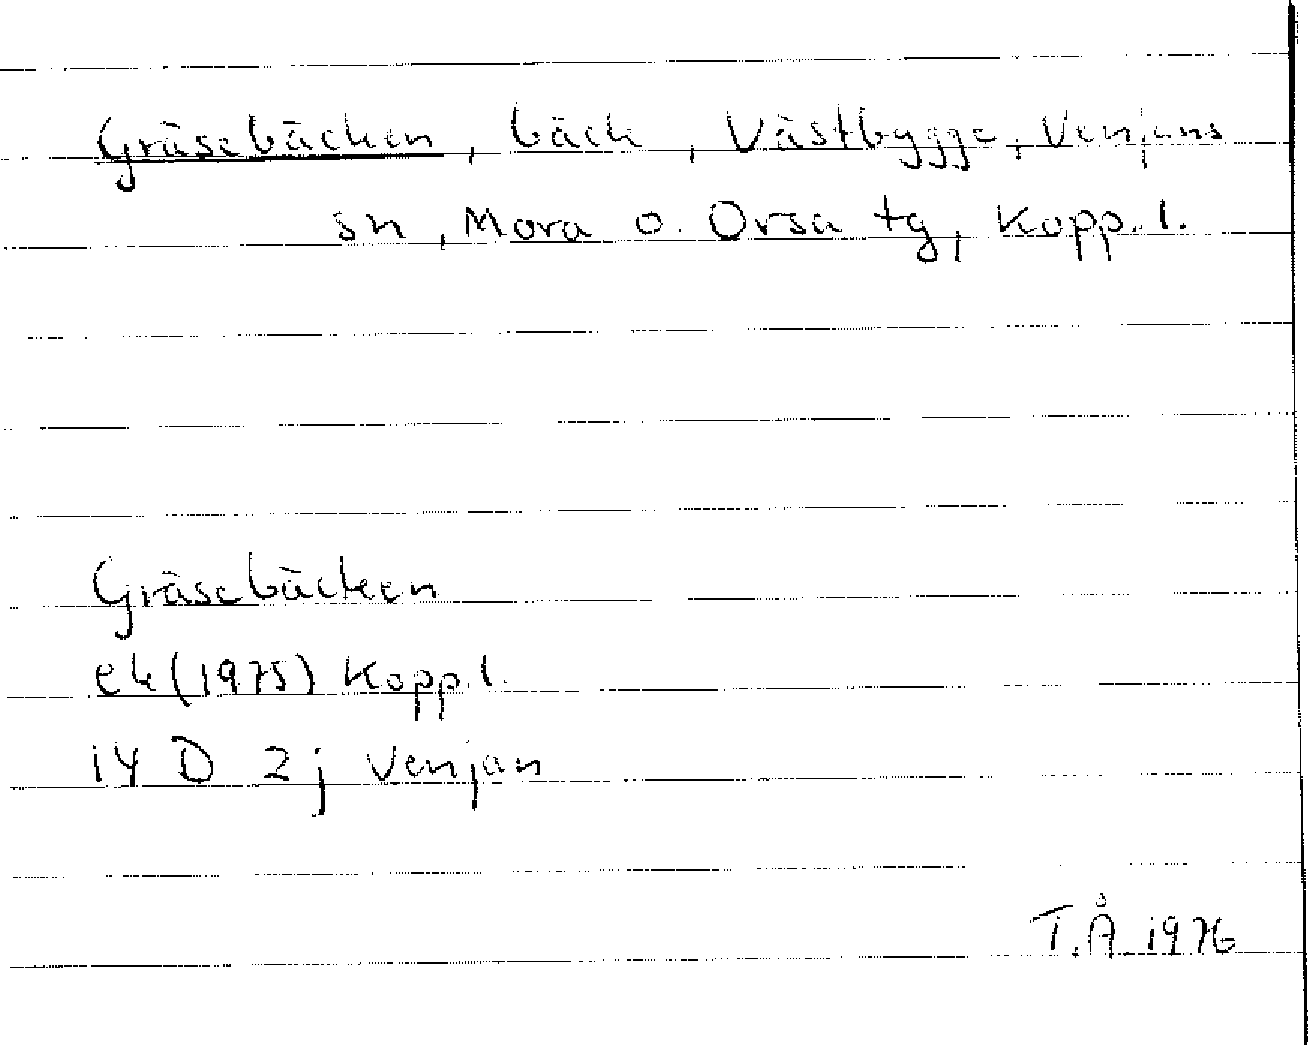 Gräsebäcken, bäck, Västbygge, Venjans
sn, Mora o. Orsa tg, Kopp. l.
Gräsebäcken
ek (1975) Kopp. l.
14 D 2 j Venjan
T.Å 1976